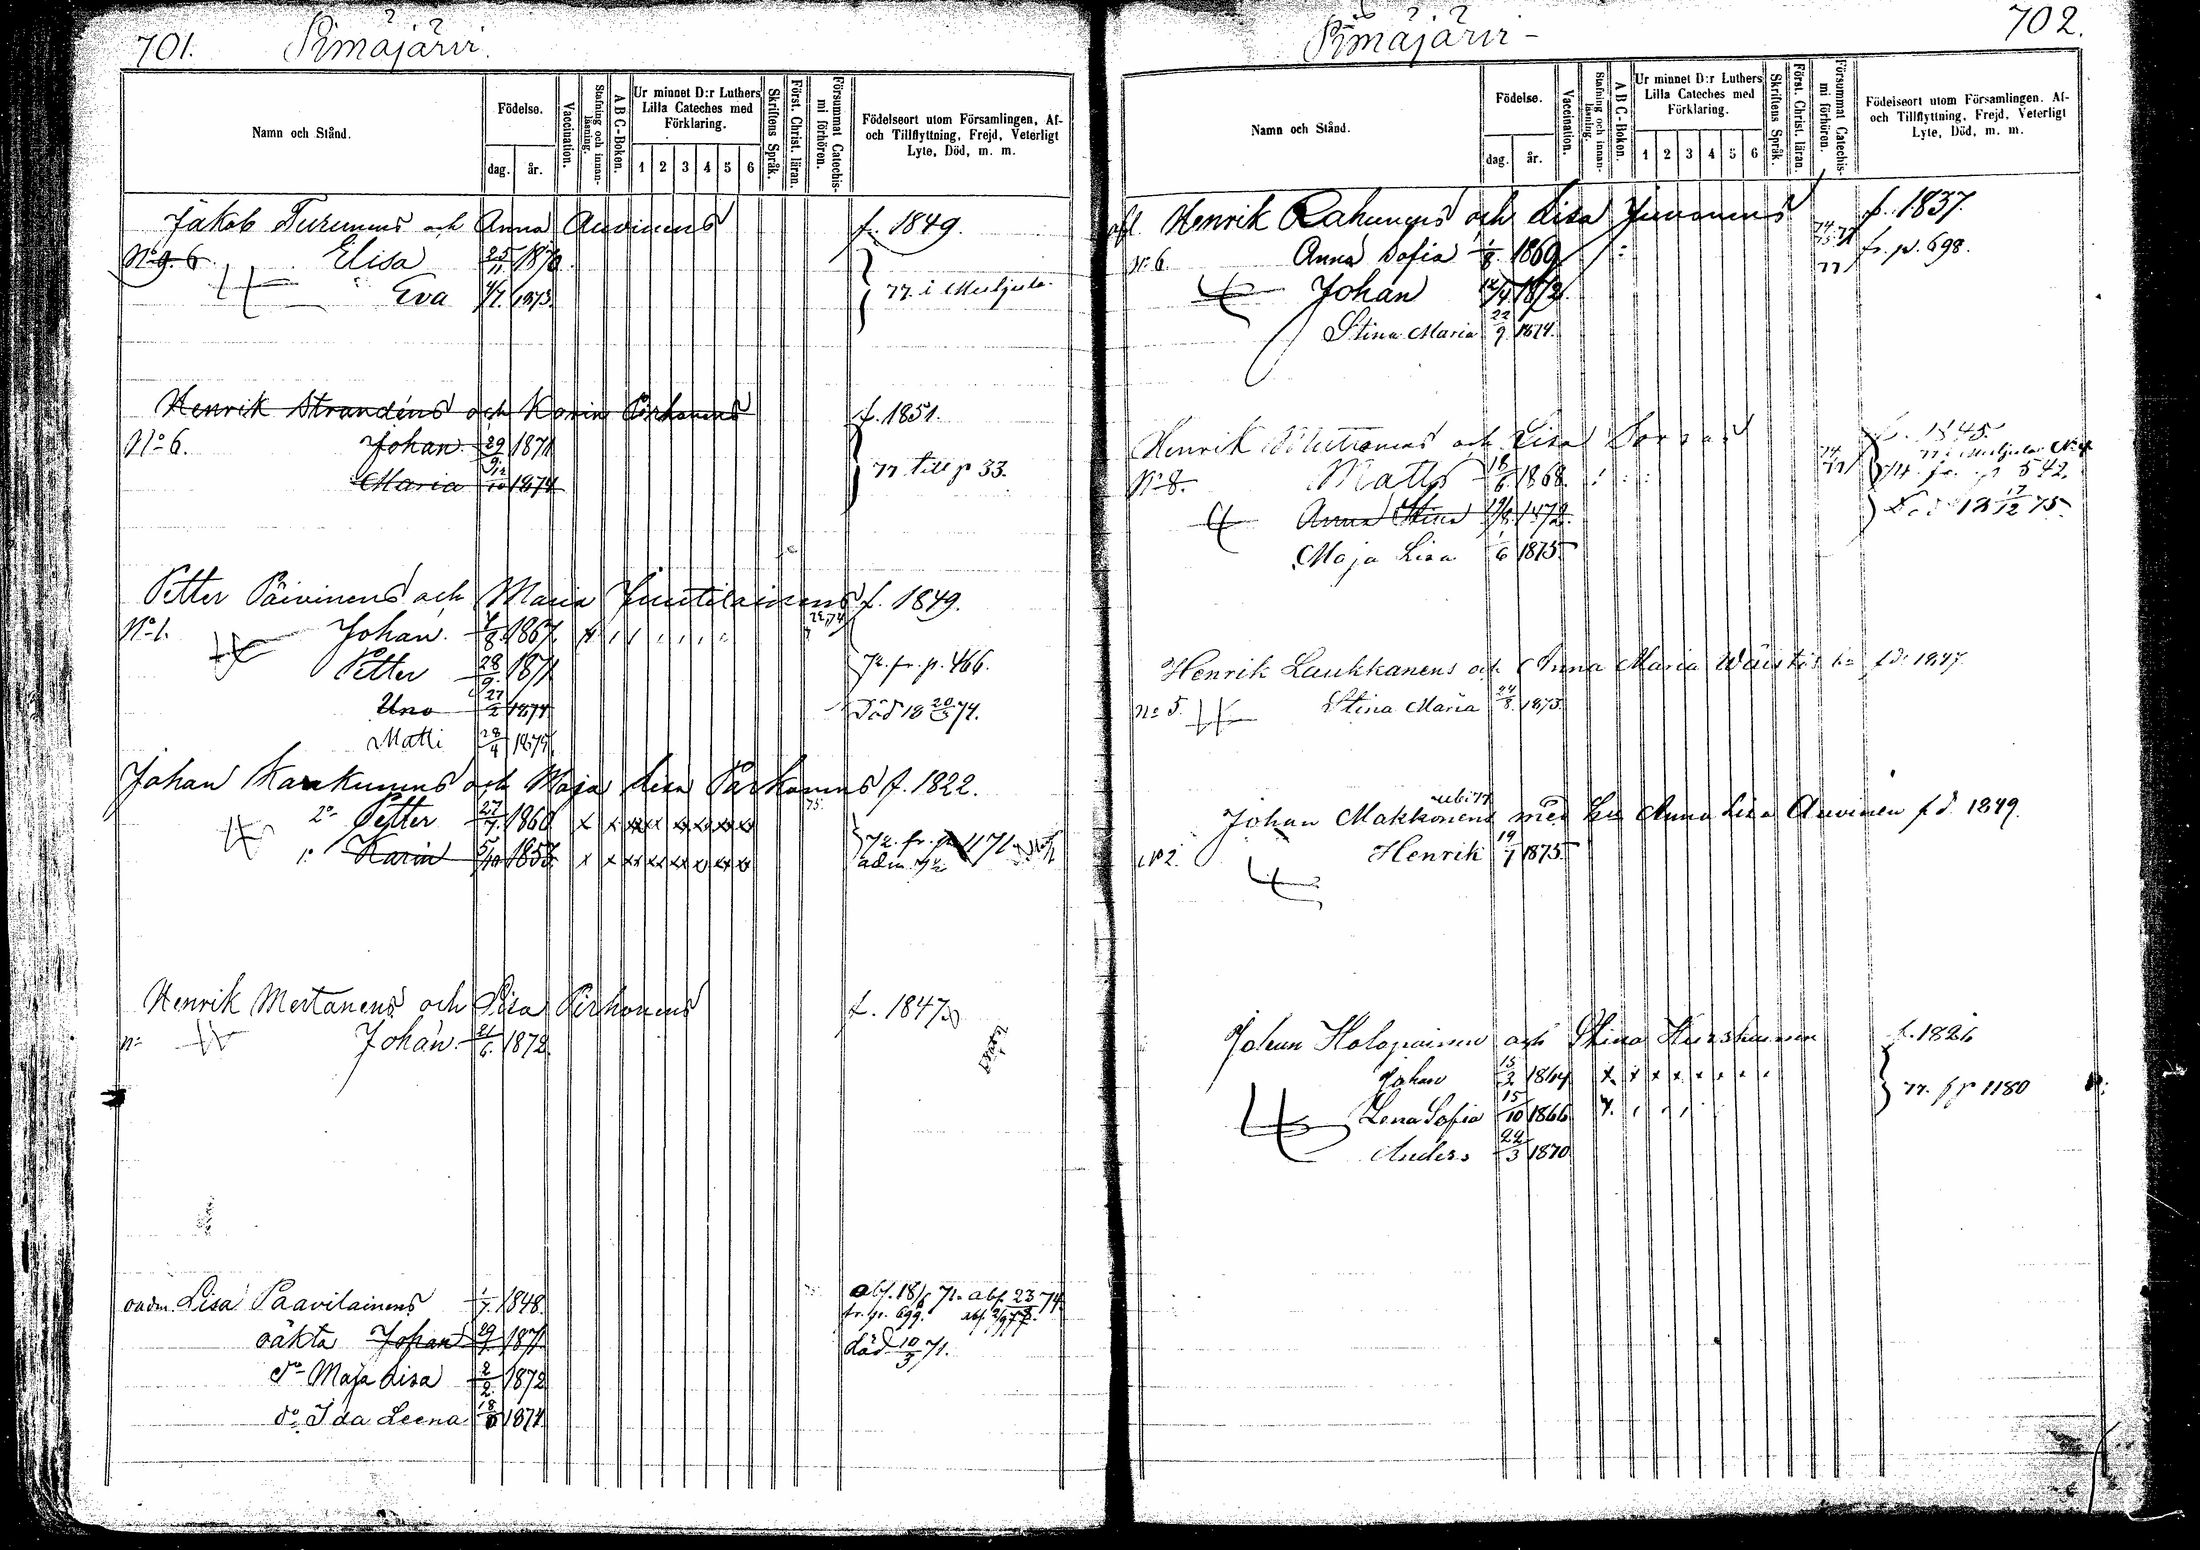 701. Pimäjärvi.
Namn och Stånd.
Födelse.
dag. år.
Vaccination.
Stafning och innanläsning.
A B C-Boken.
Ur minnet D:r Luthers Lilla Cateches med Förklaring.
1 2 3 4 5 6
Skriftens Språk.
Först. Christ. läran.
Försummat Catechismi förhören.
Födelseort utom Församlingen, Af- och Tillflyttning, Frejd, Veterligt Lyte, Död, m. m.
Jakob Turunens och Anna Auvinens f. 1849.
Elisa 25/11 1870
Eva 1873.
Henrik Strandéns och Karin Pirhonens f. 1851.
No 6. Johan 1871
Maria 1874
77 till p 33.
Petter Päivinens och Maria Juutilainens f. 1849.
No 1. Johan 1867.
Petter 28/9 1871
72. fr. p. 466.
Uno 27/2 1874 Död 18 20/3 74.
Matti 28/4 1875
Johan Karkunens och Maja Lisa Parkonens f. 1822.
2o Petter 27/7. 1860
1o Karin 5/10 1857.
72. fr. p. 1171
Henrik Mertanens och Lisa Pirhonens f. 1847
Johan 21/6. 1872
oadm. Lisa Paavilainens 1/7. 1848.
fr. p. 699.
oäkta Johan 1871 död 10/3 71.
do Maja Lisa 2/2. 1872
do Ida Leena 1874
702.
Pimäjärvi
Namn och Stånd.
Födelse.
dag. år.
Vaccination.
Stafning och innanläsning.
A B C-Boken.
Ur minnet D:r Luthers Lilla Cateches med Förklaring.
1 2 3 4 5 6
Skriftens Språk.
Först. Christ. läran
Försummat Catechismi förhören.
Födelseort utom Församlingen. Af- och Tillflyttning, Frejd, Veterligt Lyte, Död, m. m.
Henrik Rahunens och Lisa Juvonens f. 1837.
No 6. Anna Sofia 1/8. 1869 fr. p. 698.
Johan 1872.
Stina Maria 22/9 1874.
Henrik och Lisa f. 1845.
No 8. Matts 18/6 1868.
fr. p 542.
Anna Stina 1872. Död 18 17/12 75.
Maja Lisa 1/6 1875
Henrik Laukkanens och Anna Maria fd. 1847
No 5. Stina Maria 24/8. 1875.
Johan Makkonens med Anna Lisa Auvinen fd. 1849.
No 2. Henrik 19/7 1875.
Johan Holopainen och Stina f. 1826
Johan 15/2 1864
77. 1180
Lena Sofia 15/10 1866
Anders 22/3 1870